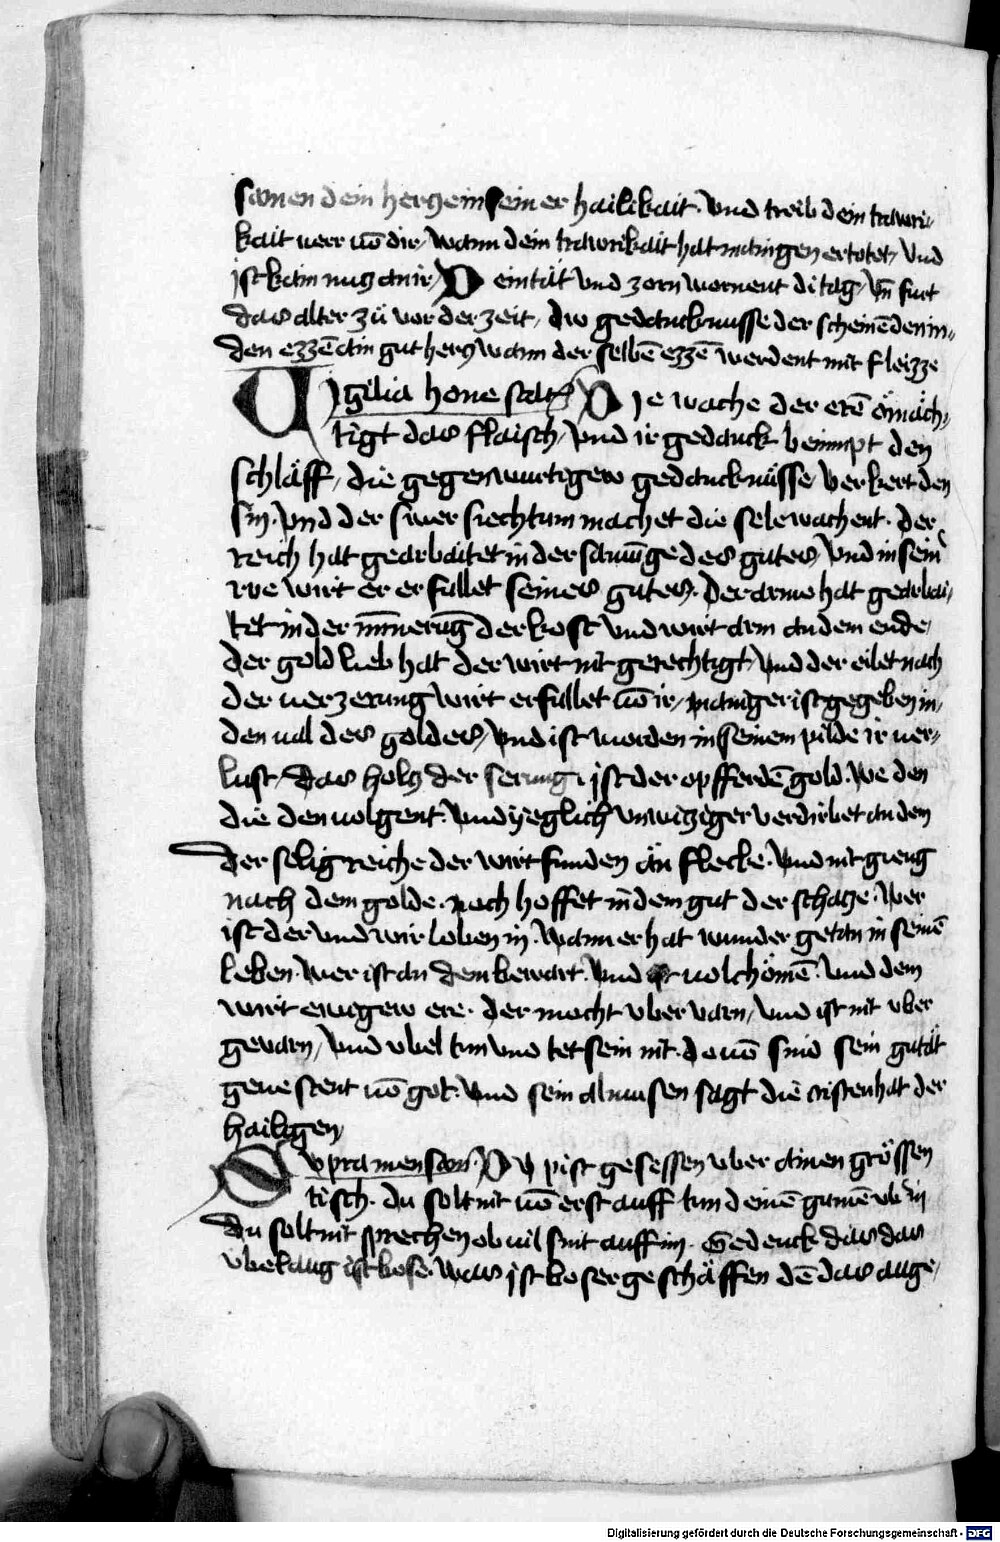 samen dein hercz ein seiner hailikait. Vnd treib dein trawri-
kait uerr võ dir, wann dein trawrikait hat manigen ertotet, Vnd
ist kain nucz an ir, Der neid vnd zorn wornent di tag, Vñ furt
das alter zů vor der zeit, die gedancknusse der scheinẽden in
den ezzẽ ain gut hercz wann der selbẽ ezzẽ werdent mit fleizze
Vigilia honestatis Die wache der erẽ ömäch-
tigt das flaisch, Vnd ir gedanck benimpt den
schläff, die gegenwurtigew gedancknüsse verkert den
sin. Vnd der swer siechtum machet die sele wachent. der
reich hat gearbaitet in der samũge des gutes, Vnd in sein
rve wirt er erfullet seines gutes. Der arme hat gearbai-
tet in der mĩnerũg der kost Vnd wirt arm an dem ende,
der gold lieb hat der wirt nit gerechtigt, Vnd der eilet nach
der uerzerung wirt erfullet võ ir, maniger ist gegeben in
den ual des goldes, Vnd ist worden in seinem pilde ir uer-
lust, das holcz der serung ist der opfferdẽ gold. We den
die den uolgent. Vnd yeglich vnwicziger verdirbet an dem
Der selig reiche der wirt funden än flecke. Vnd nit gieng
nach dem golde. noch hoffet in dem gut der schacze. Wer
ist der vnd wir loben in. Wann er hat wunder getan in seinẽ
leben. Wer ist an dem bewart. Vnd ist uolchömẽ. Vnd dem
wirt ewigew ere. der mocht vber varn, vnd ist nit vber
gevarn, Vnd vbel tun vnd tet sein nit. do uõ sind sein gutät
geuestent uõ got. Vnd sein almusen sagt die cristenhat der
hailigen
Supra mensam. Du pist gesessen vber ainen grössen
tisch. du solt nit uõ erst auff tun deinẽ gumẽ vber in
Du solt nit sprechen ob uil sint auff im. Gedenck das das
vbel aug ist bose. Was ist boser geschäffen dẽ das auge,
Digitalisierung gefördert durch die Deutsche Forschungsgemeinschaft - DFG